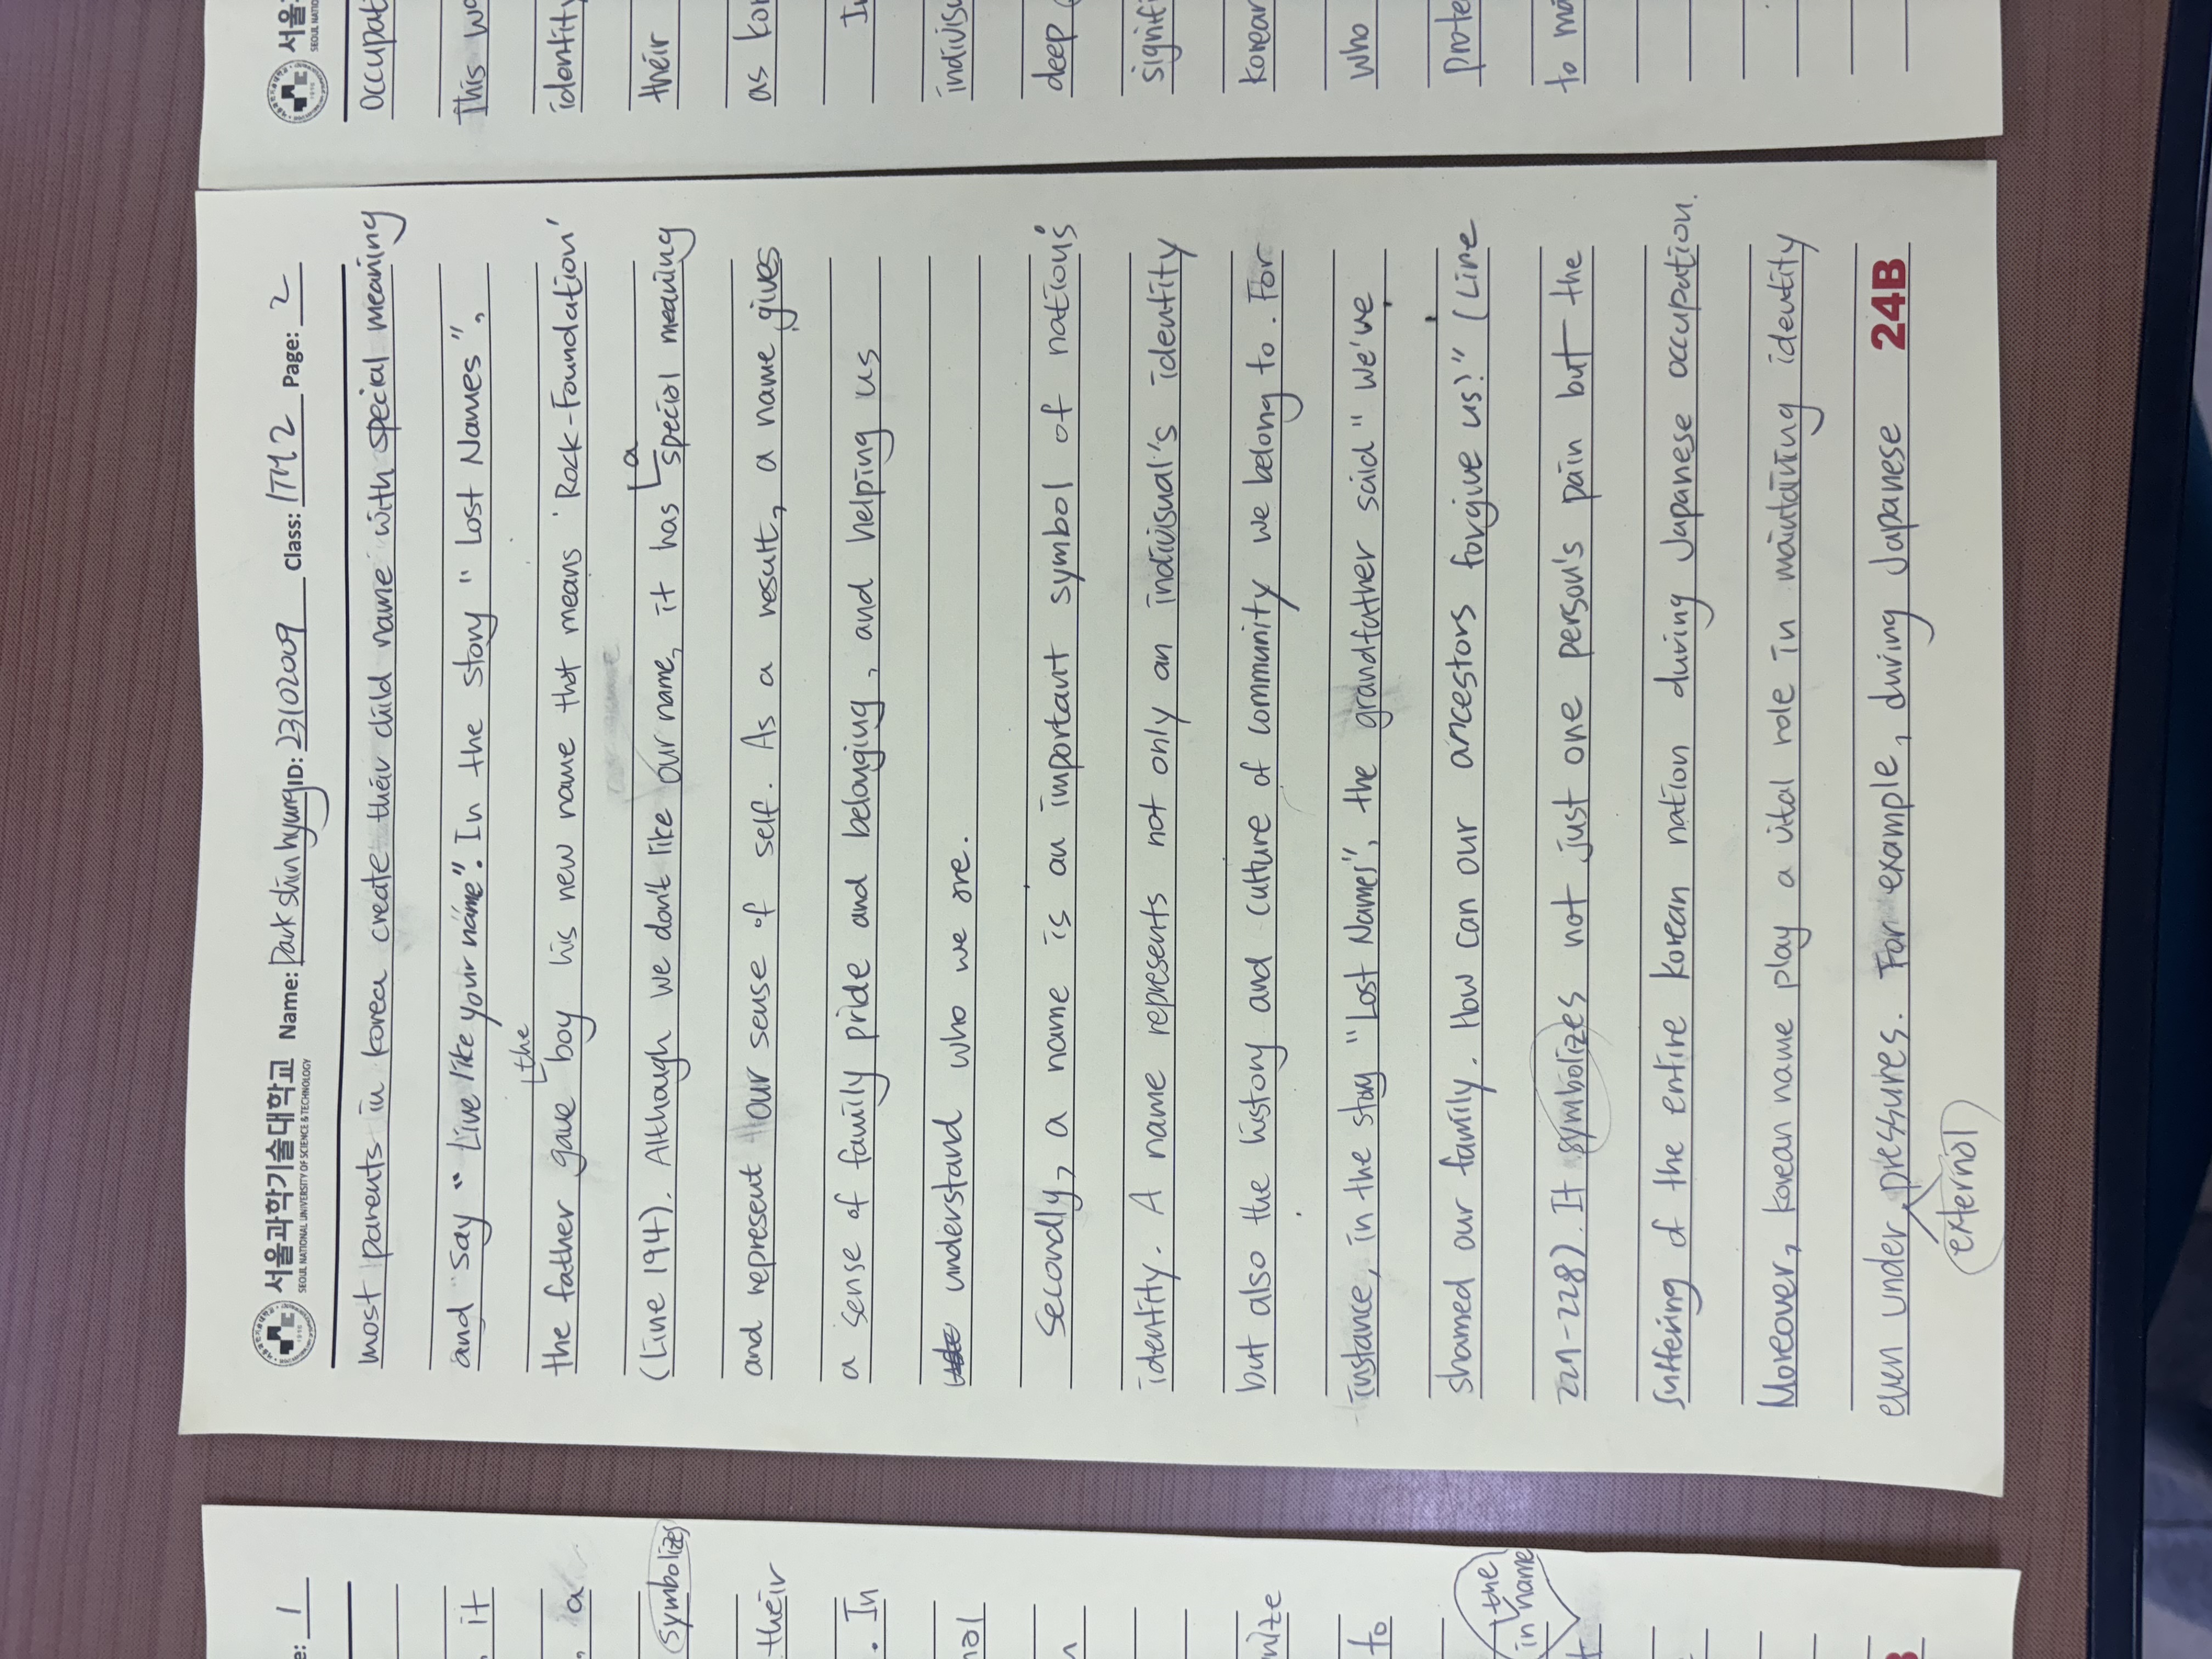 e: 1
, it
, a
symbolizes
their
. In
nal
n
nize
to
the
in name
서울과학기술대학교
SEOUL NATIONAL UNIVERSITY OF SCIENCE & TECHNOLOGY
Name: Park shin hyung ID: 23102009 Class: ITM 2 Page: 2
most parents in korea create their child name with special meaning
and say " Live like your name". In the story " Lost Names ",
the
the father gave boy his new name that means 'Rock-Foundation'
a
(Line 194). Although we don't like our name, it has special meaning
and represent our sense of self. As a result, a name gives
a sense of family pride and belonging, and helping us
understand who we are.
Secondly, a name is an important symbol of nation's
identity. A name represents not only an indivisual's identity
but also the history and culture of community we belong to. For
instance, in the story "Lost Names", the grandfather said " we've
shamed our family. How can our ancestors forgive us?" (Line
227-228). It symbolizes not just one person's pain but the
suffering of the entire korean nation during Japanese occupation.
Moreover, korean name play a vital role in maintaining identity
even under pressures. For example, during Japanese
external
24B
서울
SEOUL NATIO
occupat
This wa
identity
their
as kor
In
indivisu
deep
signif
korean
who
prote
to ma